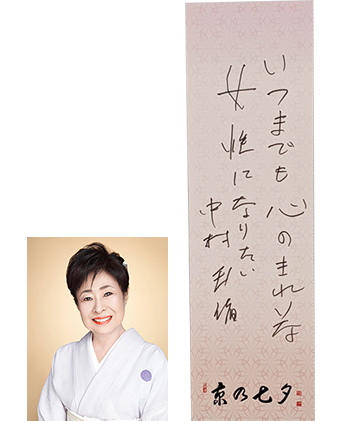 いつまでも心のきれいな
女性になりたい
中村
京の七夕